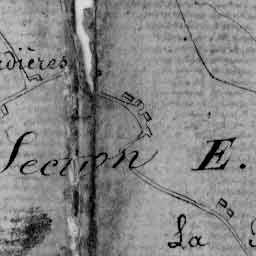 rdières
Section E.
La